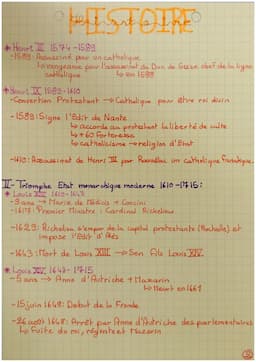 HISTOIRE
* Henri III 1574-1589
-1589: Assassiné par un catholique
↳ vengeance pour l'assassinat du Duc de Guise chef de la ligue
catholique ↳ en 1588
* Henri IV 1589-1610
-Convertion Protestant → Catholique pour être roi
-1589: Signe l'Edit de Nante
↳ accorde au protestant la liberté de culte
↳ + 60 Forteresse
↳ catholicisme → religion d'Etat
-1610: Assassinat de Henri IV par Ravaillac un catholique fanatique.
II- Triomphe Etat monarchique moderne 1610-1715:
* Louis XIII 1610-1643
-9 ans → Marie de Médicis + Concini
-1624: Premier Ministre: Cardinal Richelieu
-1629: Richelieu s'emper de la capital protestante (Rochelle) et
impose l'Edit d'Alès
-1643: Mort de Louis XIII → Son fils Louis XIV.
* Louis XIV 1643-1715
-5 ans → Anne d'Autriche + Mazarin
↳ Meurt en 1661
-15 juin 1648: Debut de la Fronde
-26 août 1648: Arrêt par Anne d'Autriche des parlementaires
↳ fuite du roi, régente et Mazarin